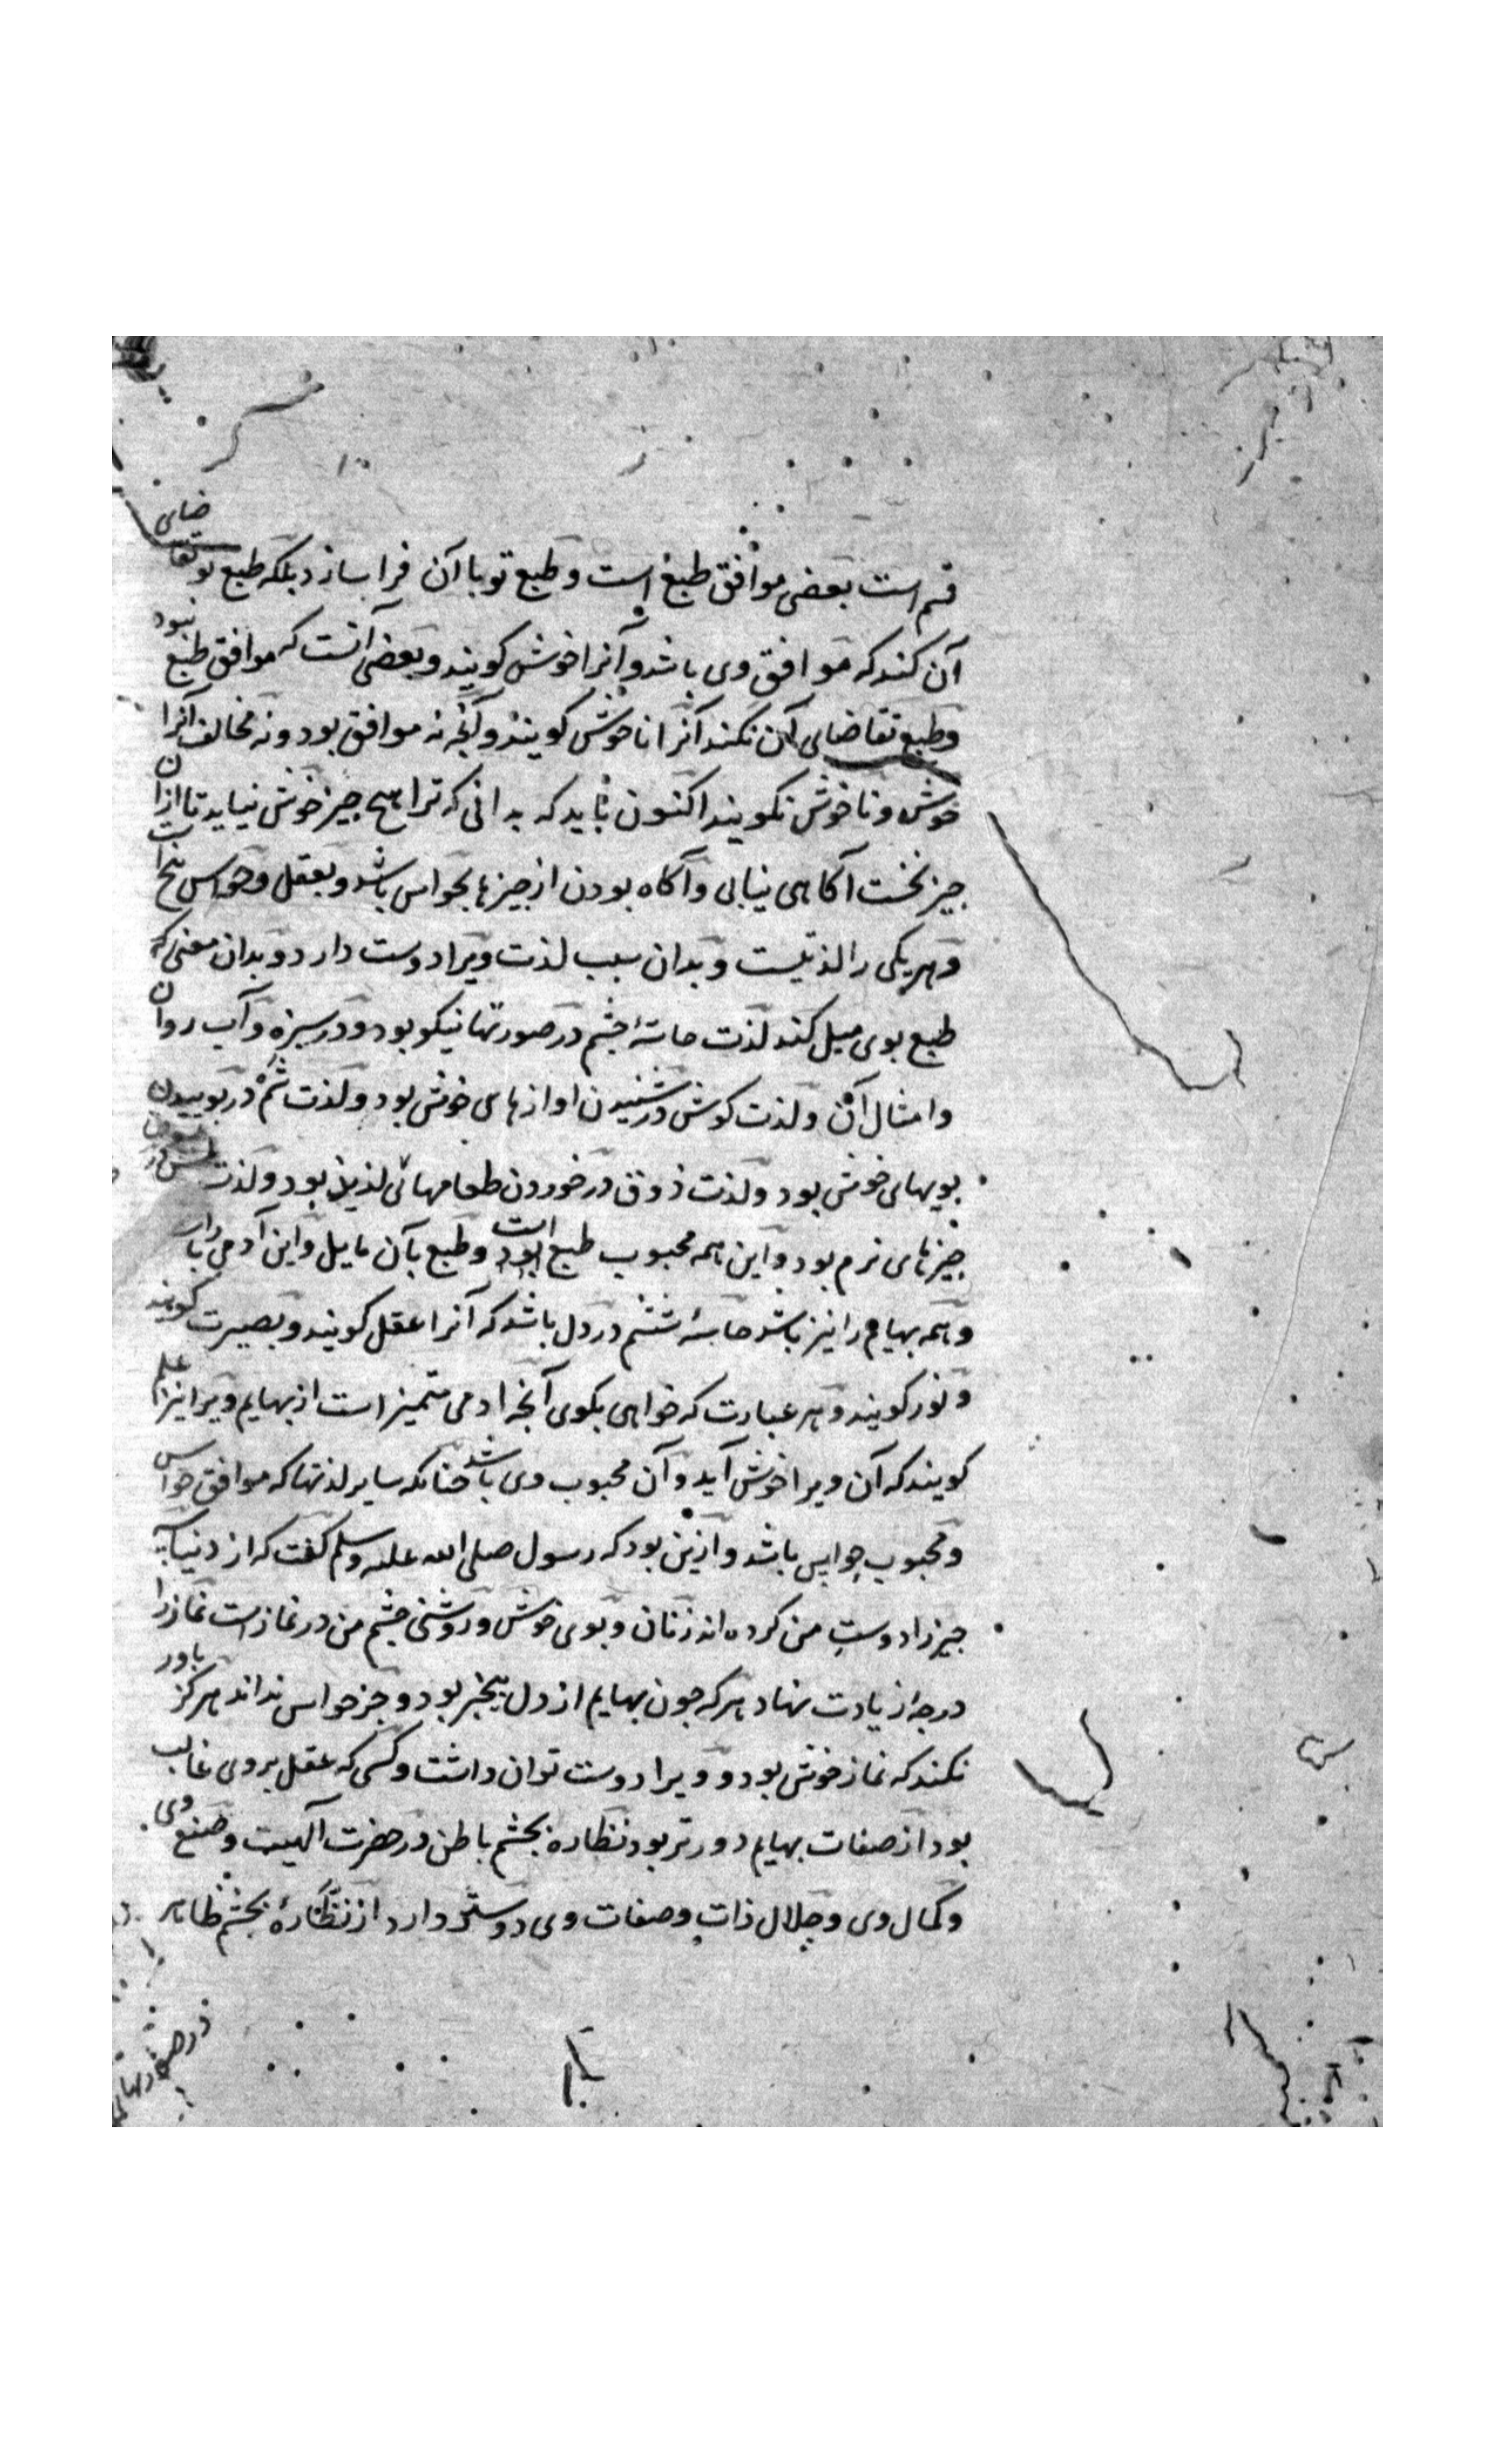 قسم است بعضی موافق طبع است و طبع تو با آن فرا سازد بلکه طبع تو تقاضای
آن کند که موافق وی باشد و آنرا خوش کویند و بعضی آنست که موافق طبع نبود
و طبع تقاضای آن نکند آنرا ناخوش کویند و آنچه نه موافق بود و نه مخالف آنرا
خوش و ناخوش نکویند اکنون باید که بدانی که ترا هیچ چیز خوش نیاید تا از آن
چیز نخست آکاهی نیابی و آکاه بودن از چیزها بحواس باشد و بعقل و حواس پنج است
و هر یکی را لذتیست و بدان سبب لذت ویرا دوست دارد و بدان معنی که
طبع بوی میل کند لذت حاسهٔ چشم در صورتها نیکو بود و در سبزه و آب روان
و امثال آن و لذت کوش در شنیدن اوازهای خوش بود و لذت شم در بوییدن
بویهای خوش بود و لذت ذوق در خوردن طعامهائی لذیذ بود و لذت لمس در
چیزهای نرم بود و این همه محبوب طبع است و طبع بآن مایل و این آدمی را باشد
و همه بهایم را نیز باشد حاسهٔ ششم در دل باشد که آنرا عقل کویند و بصیرت کویند
و نور کویند و هر عبارت که خواهی بکوی آنچه ادمی متمیز است از بهایم ویرا نیز علم
کویند که آن ویرا خوش آید و آن محبوب وی باشد چنانکه سایر لذتها که موافق حواس
و محبوب حواس باشد و ازین بود که رسول صلی الله علیه وسلم کفت که از دنیا سه
چیز را دوست من کرده اند زنان و بوی خوش و روشنی چشم من در نماز است نماز را
درجه زیادت نهاد هر که چون بهایم از دل بیخبر بود و جز حواس نداند هرکز باور
نکند که نماز خوش بود و ویرا دوست توان داشت و کسی که عقل بر وی غالب
بود از صفات بهایم دورتر بود نظاره بچشم باطن در حضرت آلهیت و صنع وی
و کمال وی و جلال ذات و صفات وی دوستر دارد از نظارهٔ بچشم ظاهر
در صورتهای